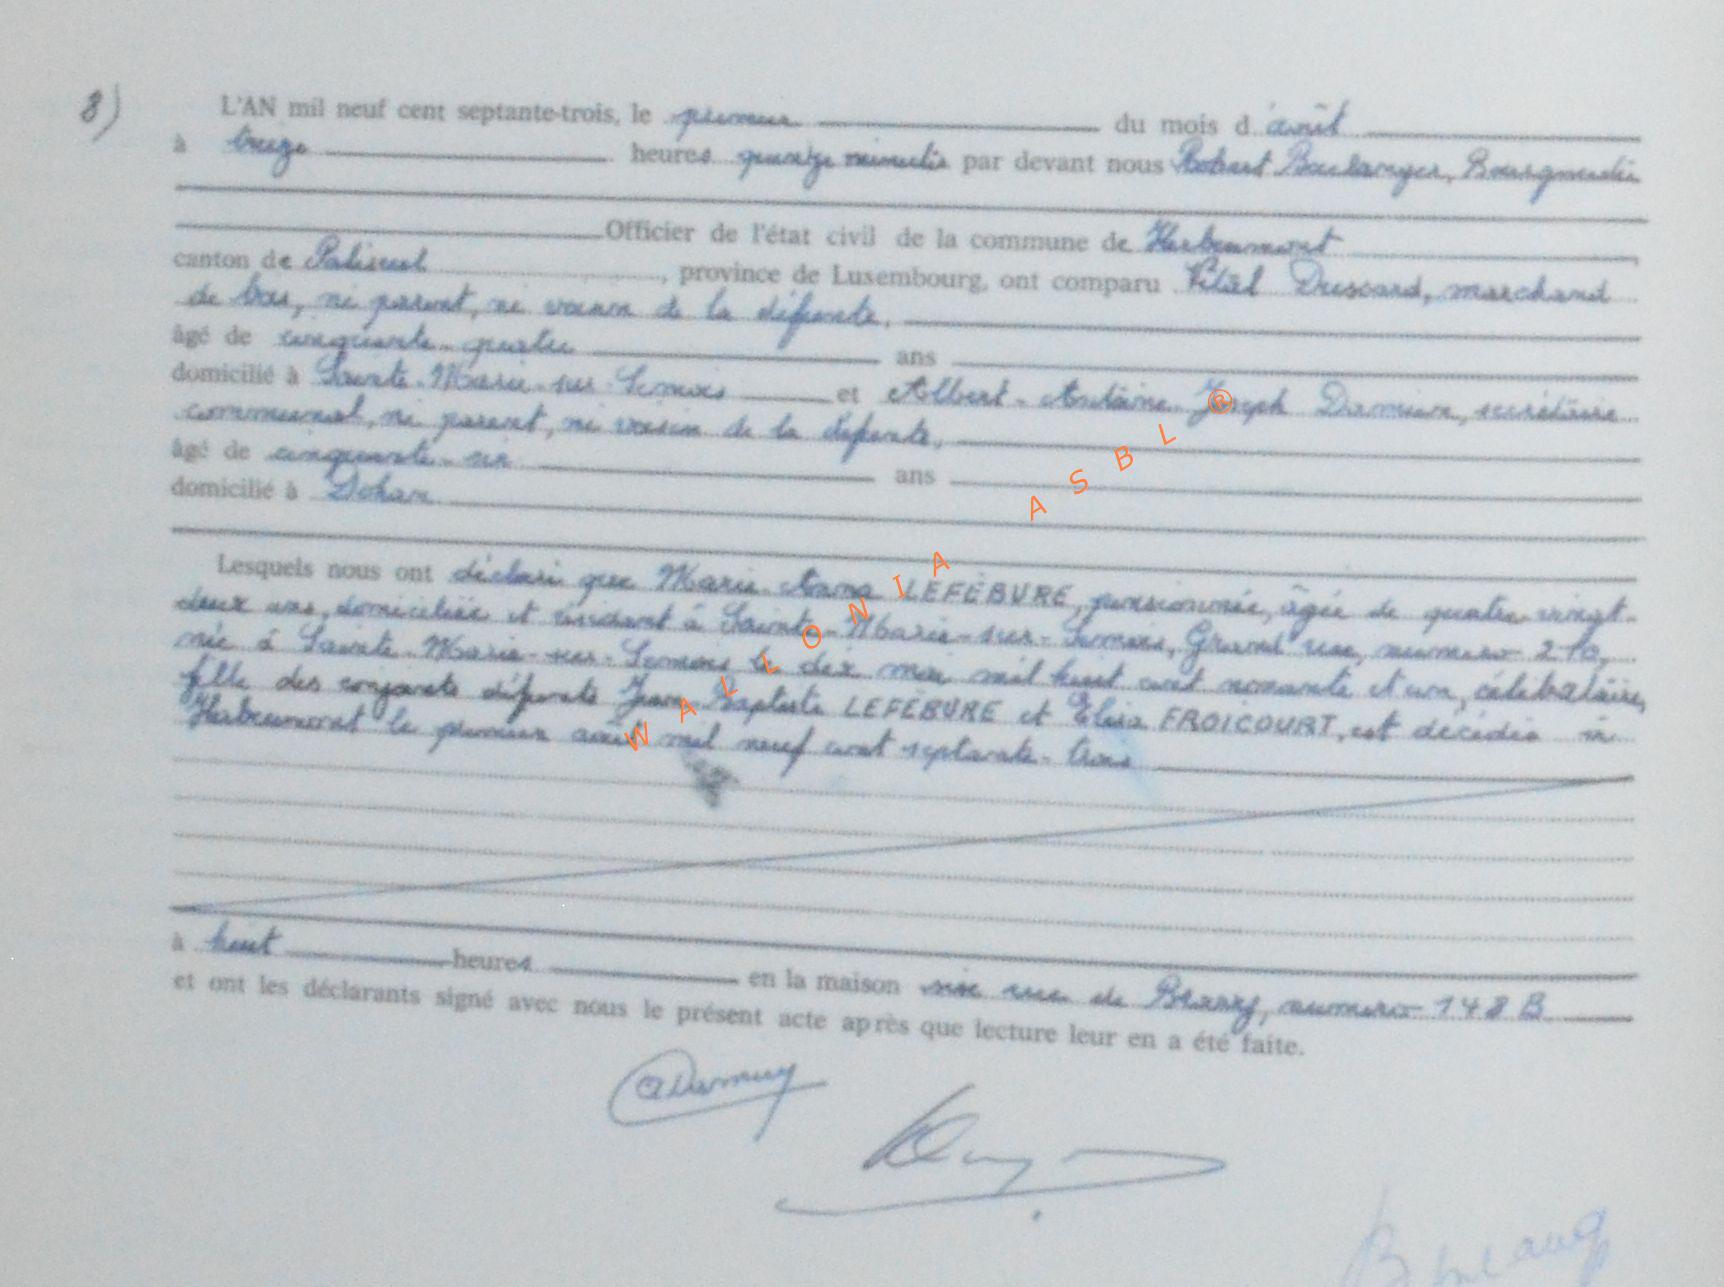 8) L'AN mil neuf cent septante-trois, le premier du mois d'août
à treize heures quinze minutes par devant nous Robert Boulanger, Bourgmestre
Officier de l'état civil de la commune de Herbeumont
canton de Paliseul, province de Luxembourg, ont comparu Vital Duscard, marchand
de bois, ni parent, ni voisin de la défunte,
âgé de cinquante-quatre ans
domicilié à Sainte-Marie-sur-Semois et Albert-Antoine Joseph Damien, secrétaire
communal, ni parent, ni voisin de la défunte,
âgé de cinquante-six ans
domicilié à Dohan
Lesquels nous ont déclaré que Marie-Anna LEFÈBURE, pensionnée, âgée de quatre-vingt-
deux ans, domiciliée et résidant à Sainte-Marie-sur-Semois, Grand'rue, numéro 210,
née à Sainte-Marie-sur-Semois le dix mai mil huit cent nonante et un, célibataire,
fille des conjoints défunts Jean-Baptiste LEFÈBURE et Elisa FROICOURT, est décédée à
Herbeumont le premier août mil neuf cent septante-trois
à huit heures en la maison sise rue de Bravy, numéro 148 B
et ont les déclarants signé avec nous le présent acte après que lecture leur en a été faite.
WALLONIA ASBL ®